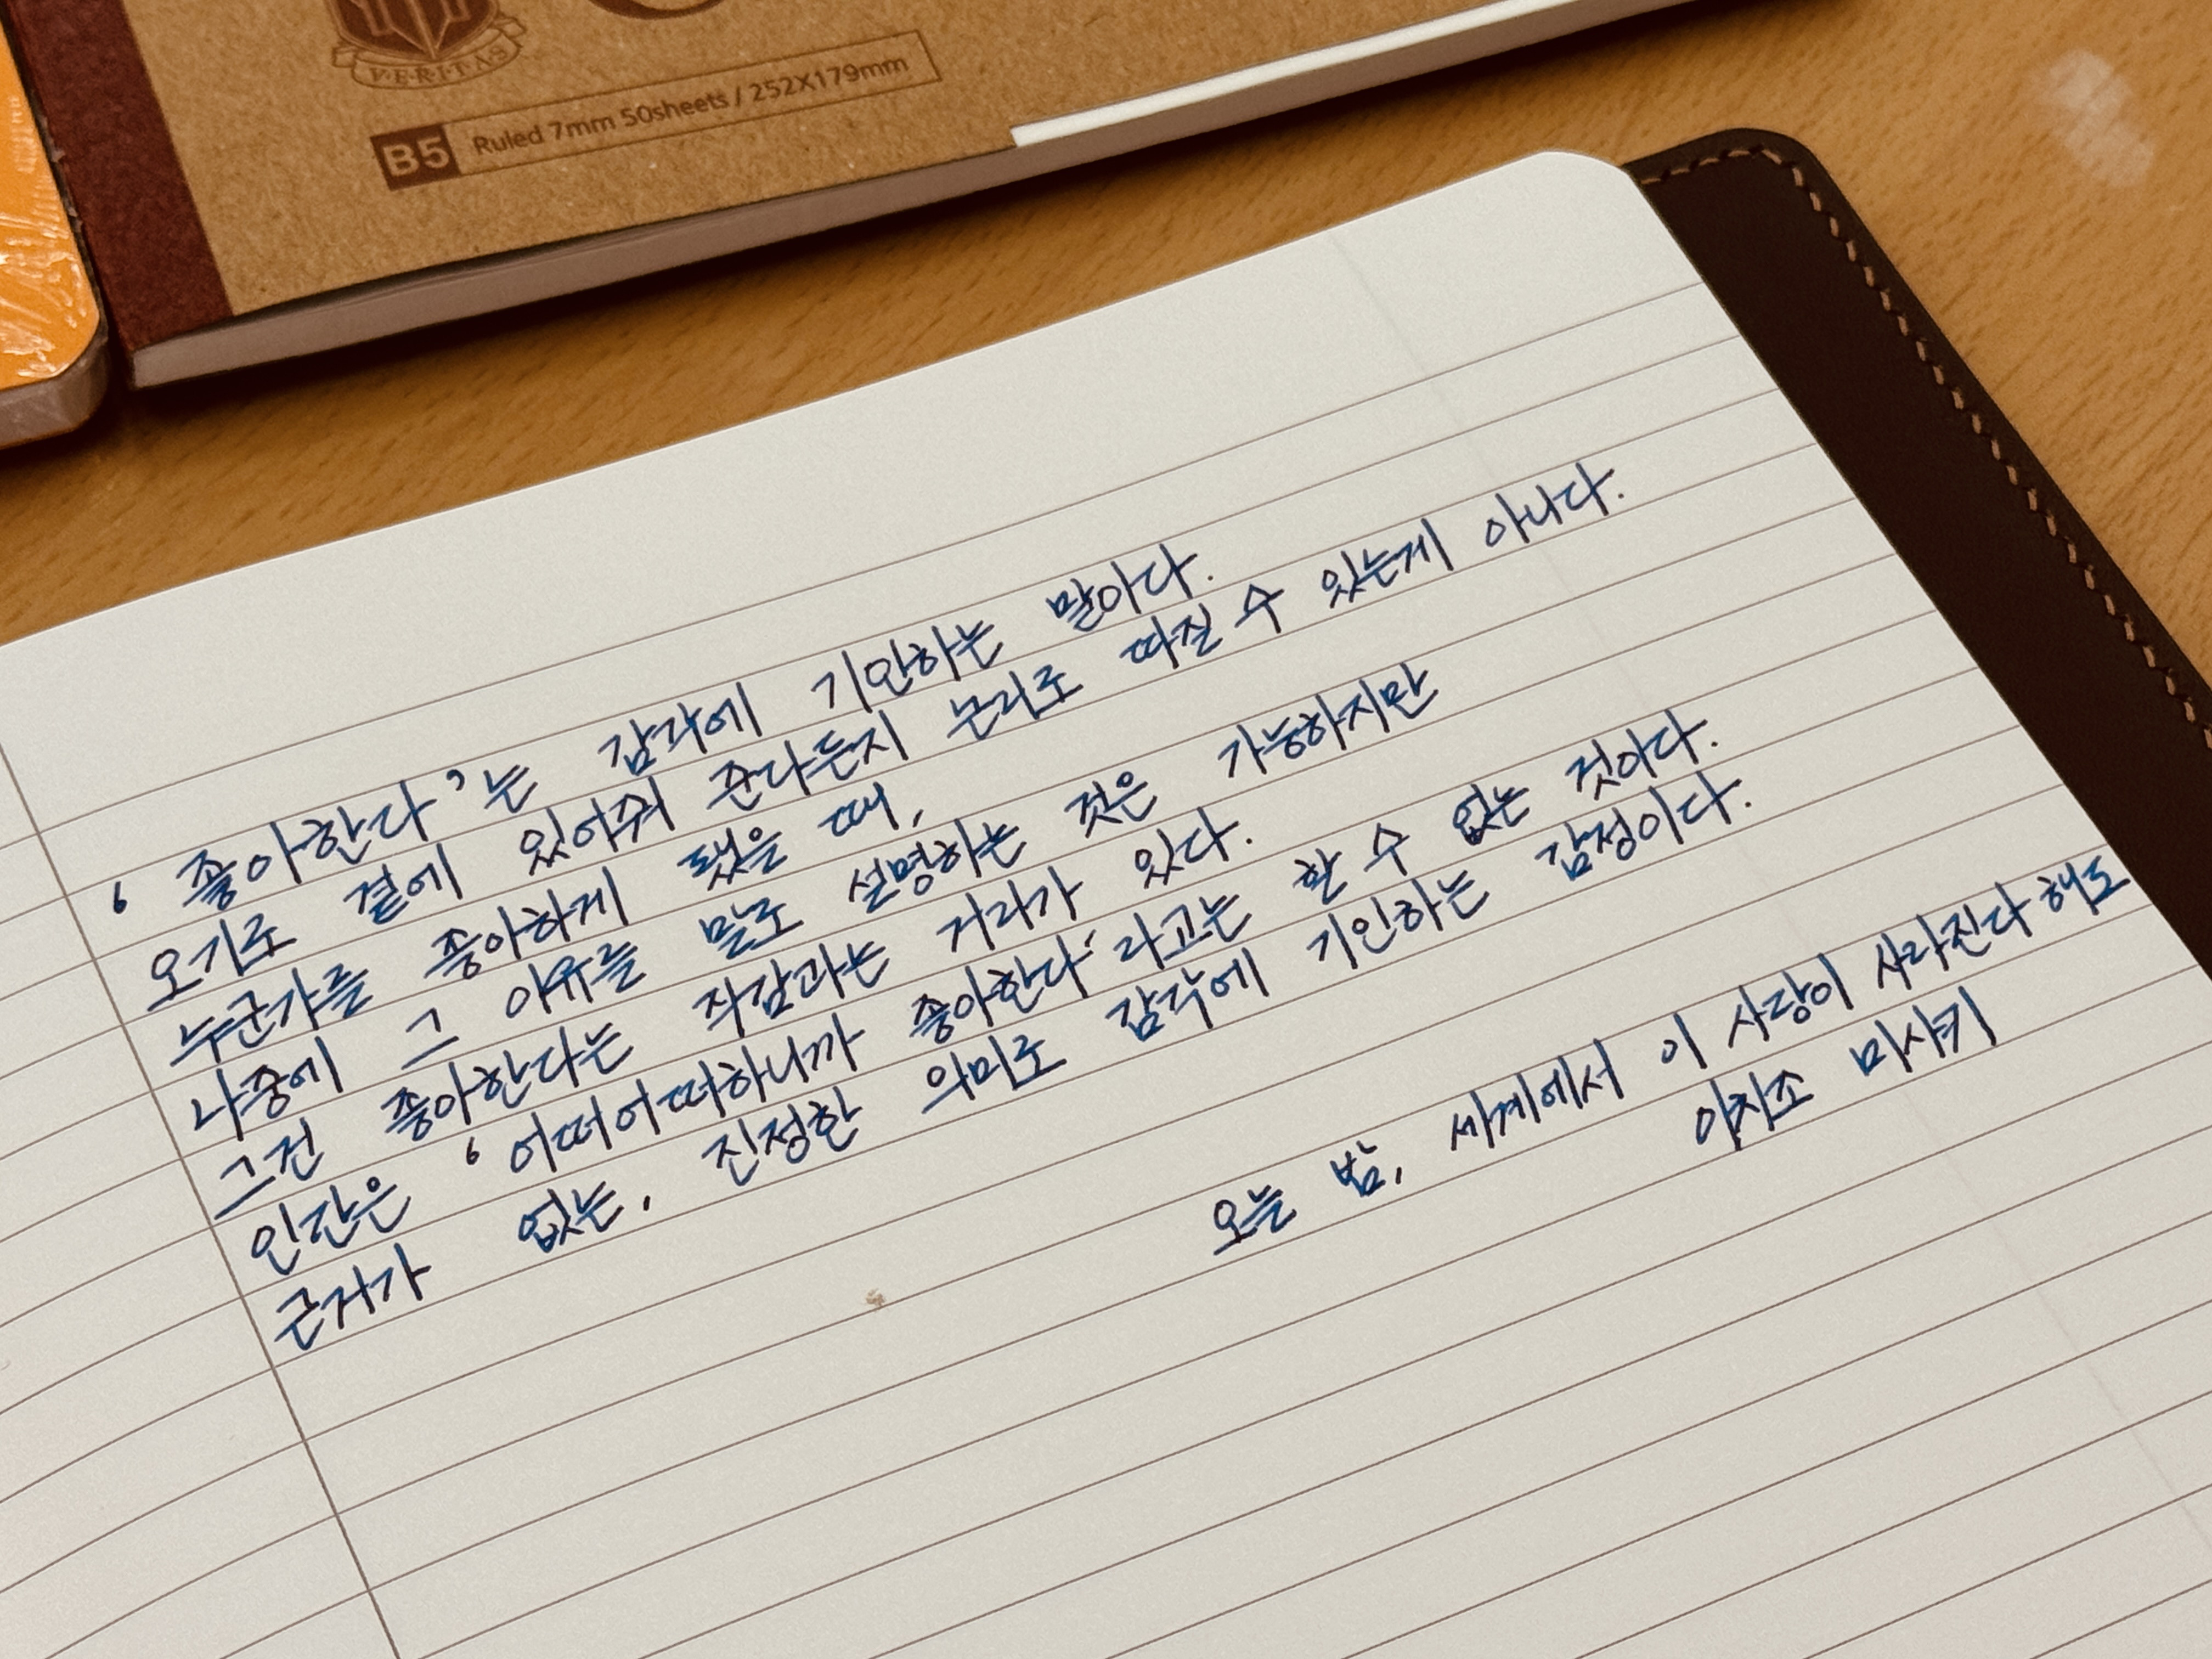 VERITAS
B5 Ruled 7mm 50sheets / 252X179mm
‘좋아한다’는 감각에 기인하는 말이다.
오기로 곁에 있어줘 준다든지 논리로 따질 수 있는게 아니다.
누군가를 좋아하게 됐을 때,
나중에 그 이유를 말로 설명하는 것은 가능하지만
그건 좋아한다는 직감과는 거리가 있다.
인간은 ‘어떠어떠하니까 좋아한다’라고는 할 수 없는 것이다.
근거가 없는, 진정한 의미로 감각에 기인하는 감정이다.
오늘 밤, 세계에서 이 사랑이 사라진다 해도
이치조 미사키